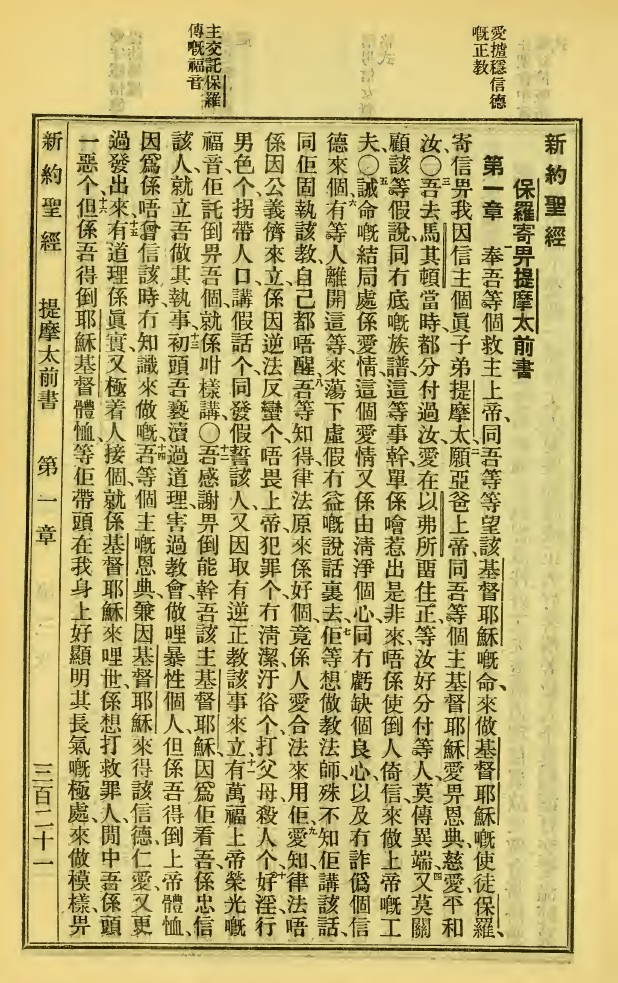 愛揸穩信德
嘅正教
主交託保羅
傳嘅福音
新約聖經
保羅寄畀提摩太前書
第一章 一奉吾等個救主上帝、同吾等等望該基督耶穌嘅命、來做基督耶穌嘅使徒保羅、
寄信畀我因信主個眞子弟提摩太、二願亞爸上帝同吾等個主基督耶穌愛畀恩典、慈愛、平和
汝、○三吾去馬其頓當時都分付過汝、愛在以弗所畱住、正等汝好分付等人莫傳異端、四又莫關
顧該等假說、同冇底嘅族譜、這等事幹單係噲惹出是非來、唔係使倒人倚信來做上帝嘅工
夫、○五誡命嘅結局處係愛情、這個愛情又係由清淨個心、同冇虧缺個良心、以及冇詐僞個信
德來個、六有等人離開這等、來蕩下虛假冇益嘅說話裏去、七佢等想做教法師、殊不知佢講該話、
同佢固執該教、自己都唔醒、八吾等知得律法原來係好個、竟係人愛合法來用佢、九愛知律法唔
係因公義儕來立、係因逆法反蠻个、唔畏上帝犯罪个、冇清潔汙俗个、打父母殺人个、十好淫行
男色个、拐帶人口、講假話个、同發假誓該人、又因取有逆正教該事來立、十一有萬福上帝榮光嘅
福音、佢託倒畀吾個、就係咁樣講、○十二吾感謝畀倒能幹吾該主基督耶穌、因爲佢看吾係忠信
該人、就立吾做其執事、十三初頭吾褻瀆過道理、害過教會、做哩暴性個人、但係吾得倒上帝體恤、
因爲係唔曾信該時、冇知識來做嘅、十四吾等個主嘅恩典、兼因基督耶穌來得該信德仁愛、又更
過發出來、十五有道理係眞實、又極着人接個、就係基督耶穌來哩世、係想打救罪人、閒中吾係頭
一惡个、十六但係吾得倒耶穌基督體恤、等佢帶頭在我身上好顯明其長氣嘅極處、來做模樣、畀
新約聖經 提摩太前書 第一章 三百二十一